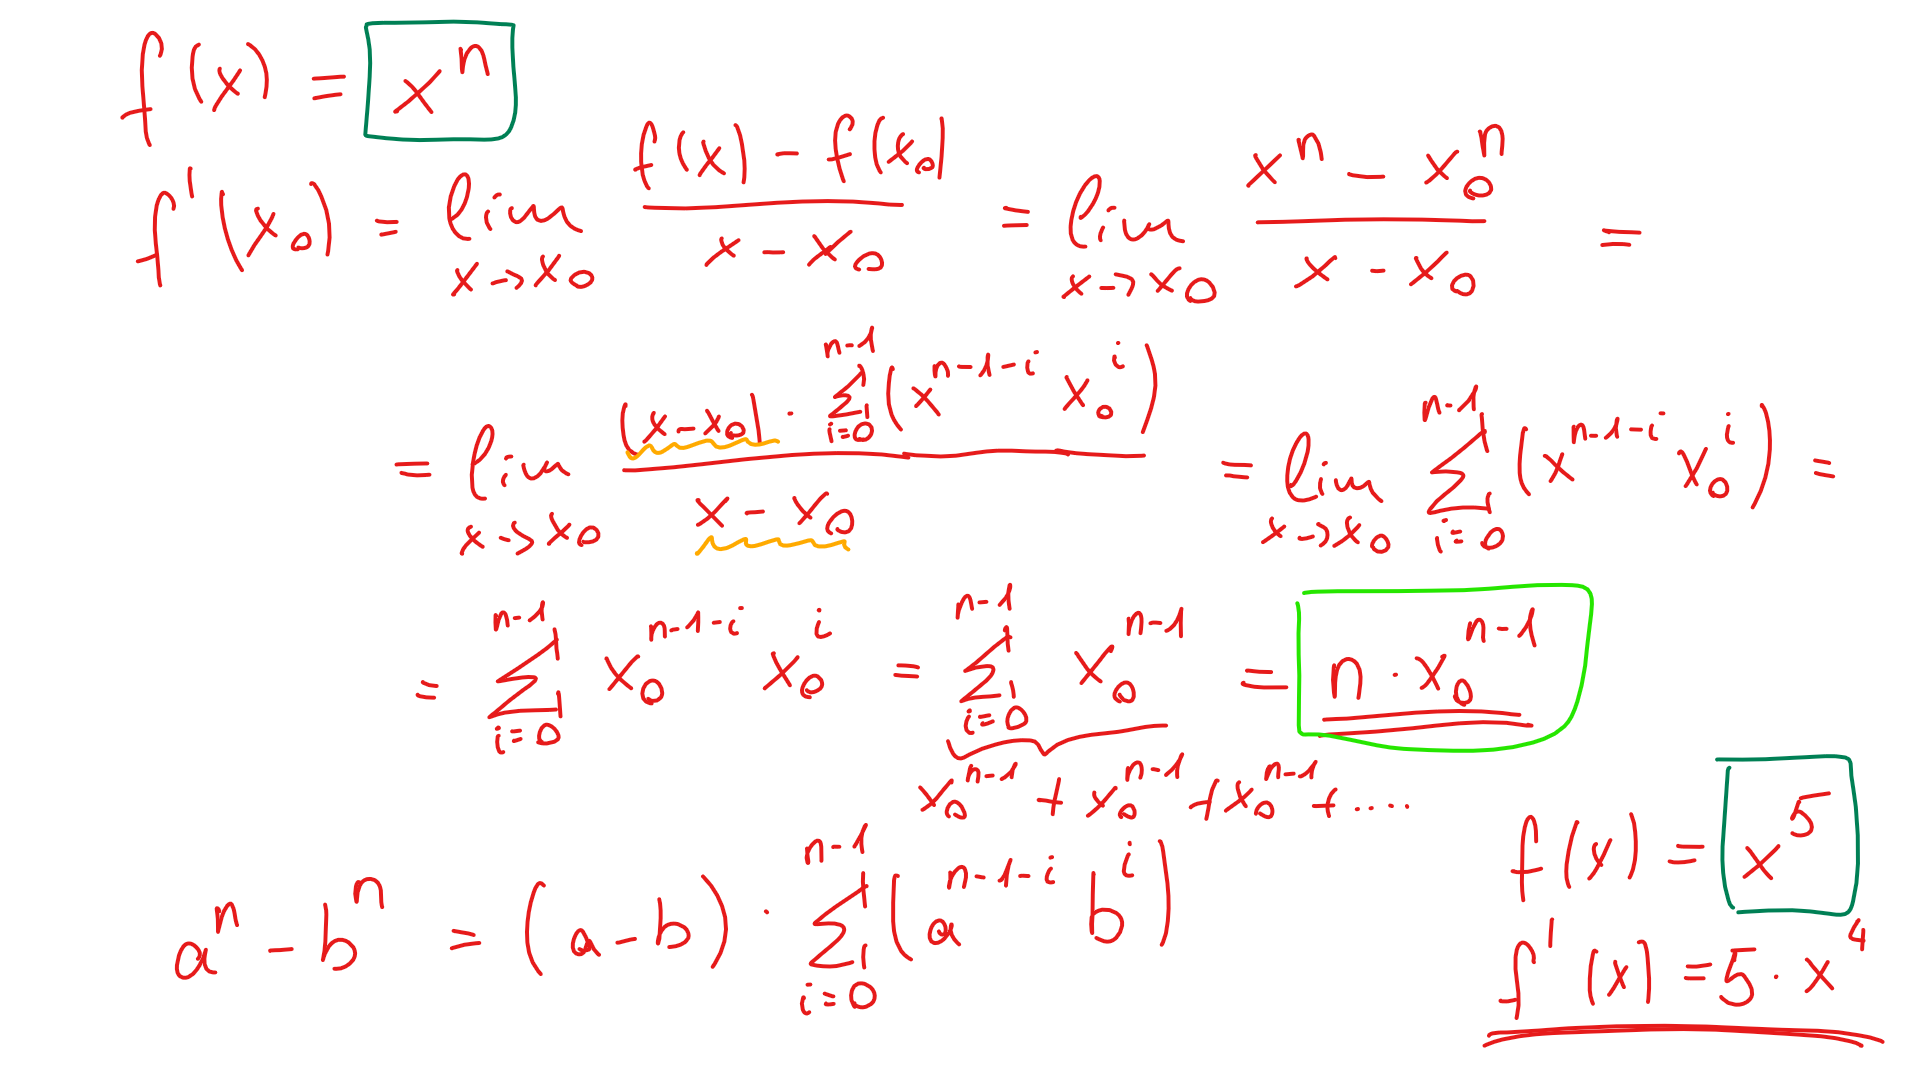 f(x) = xⁿ
f'(x₀) = lim x→x₀ (f(x) - f(x₀))/(x - x₀) = lim x→x₀ (xⁿ - x₀ⁿ)/(x - x₀) =
= lim x→x₀ ((x-x₀) · Σ_{i=0}^{n-1} (x^{n-1-i} x₀^i))/(x - x₀) = lim x→x₀ Σ_{i=0}^{n-1} (x^{n-1-i} x₀^i) =
= Σ_{i=0}^{n-1} x₀^{n-1-i} x₀^i = Σ_{i=0}^{n-1} x₀^{n-1} = n · x₀^{n-1}
x₀^{n-1} + x₀^{n-1} + x₀^{n-1} + ....
aⁿ - bⁿ = (a-b) · Σ_{i=0}^{n-1} (a^{n-1-i} b^i)
f(x) = x⁵
f'(x) = 5 · x⁴